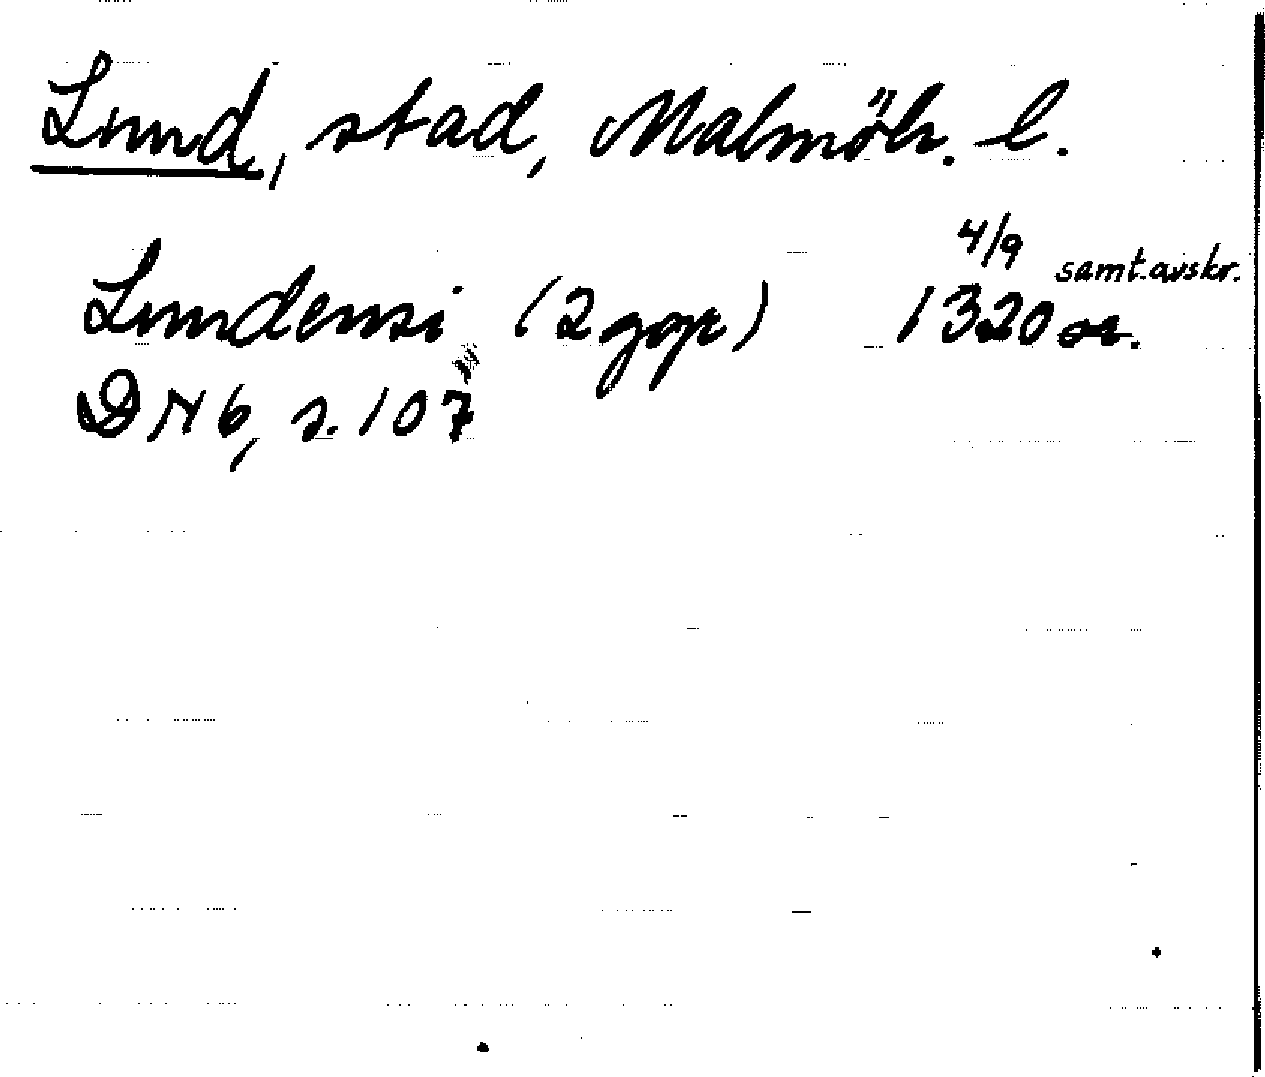 Lund, stad, Malmöh. l.
Lundensi (2 ggr) 4/9 1320 samt.avskr.
DN 6, s. 107